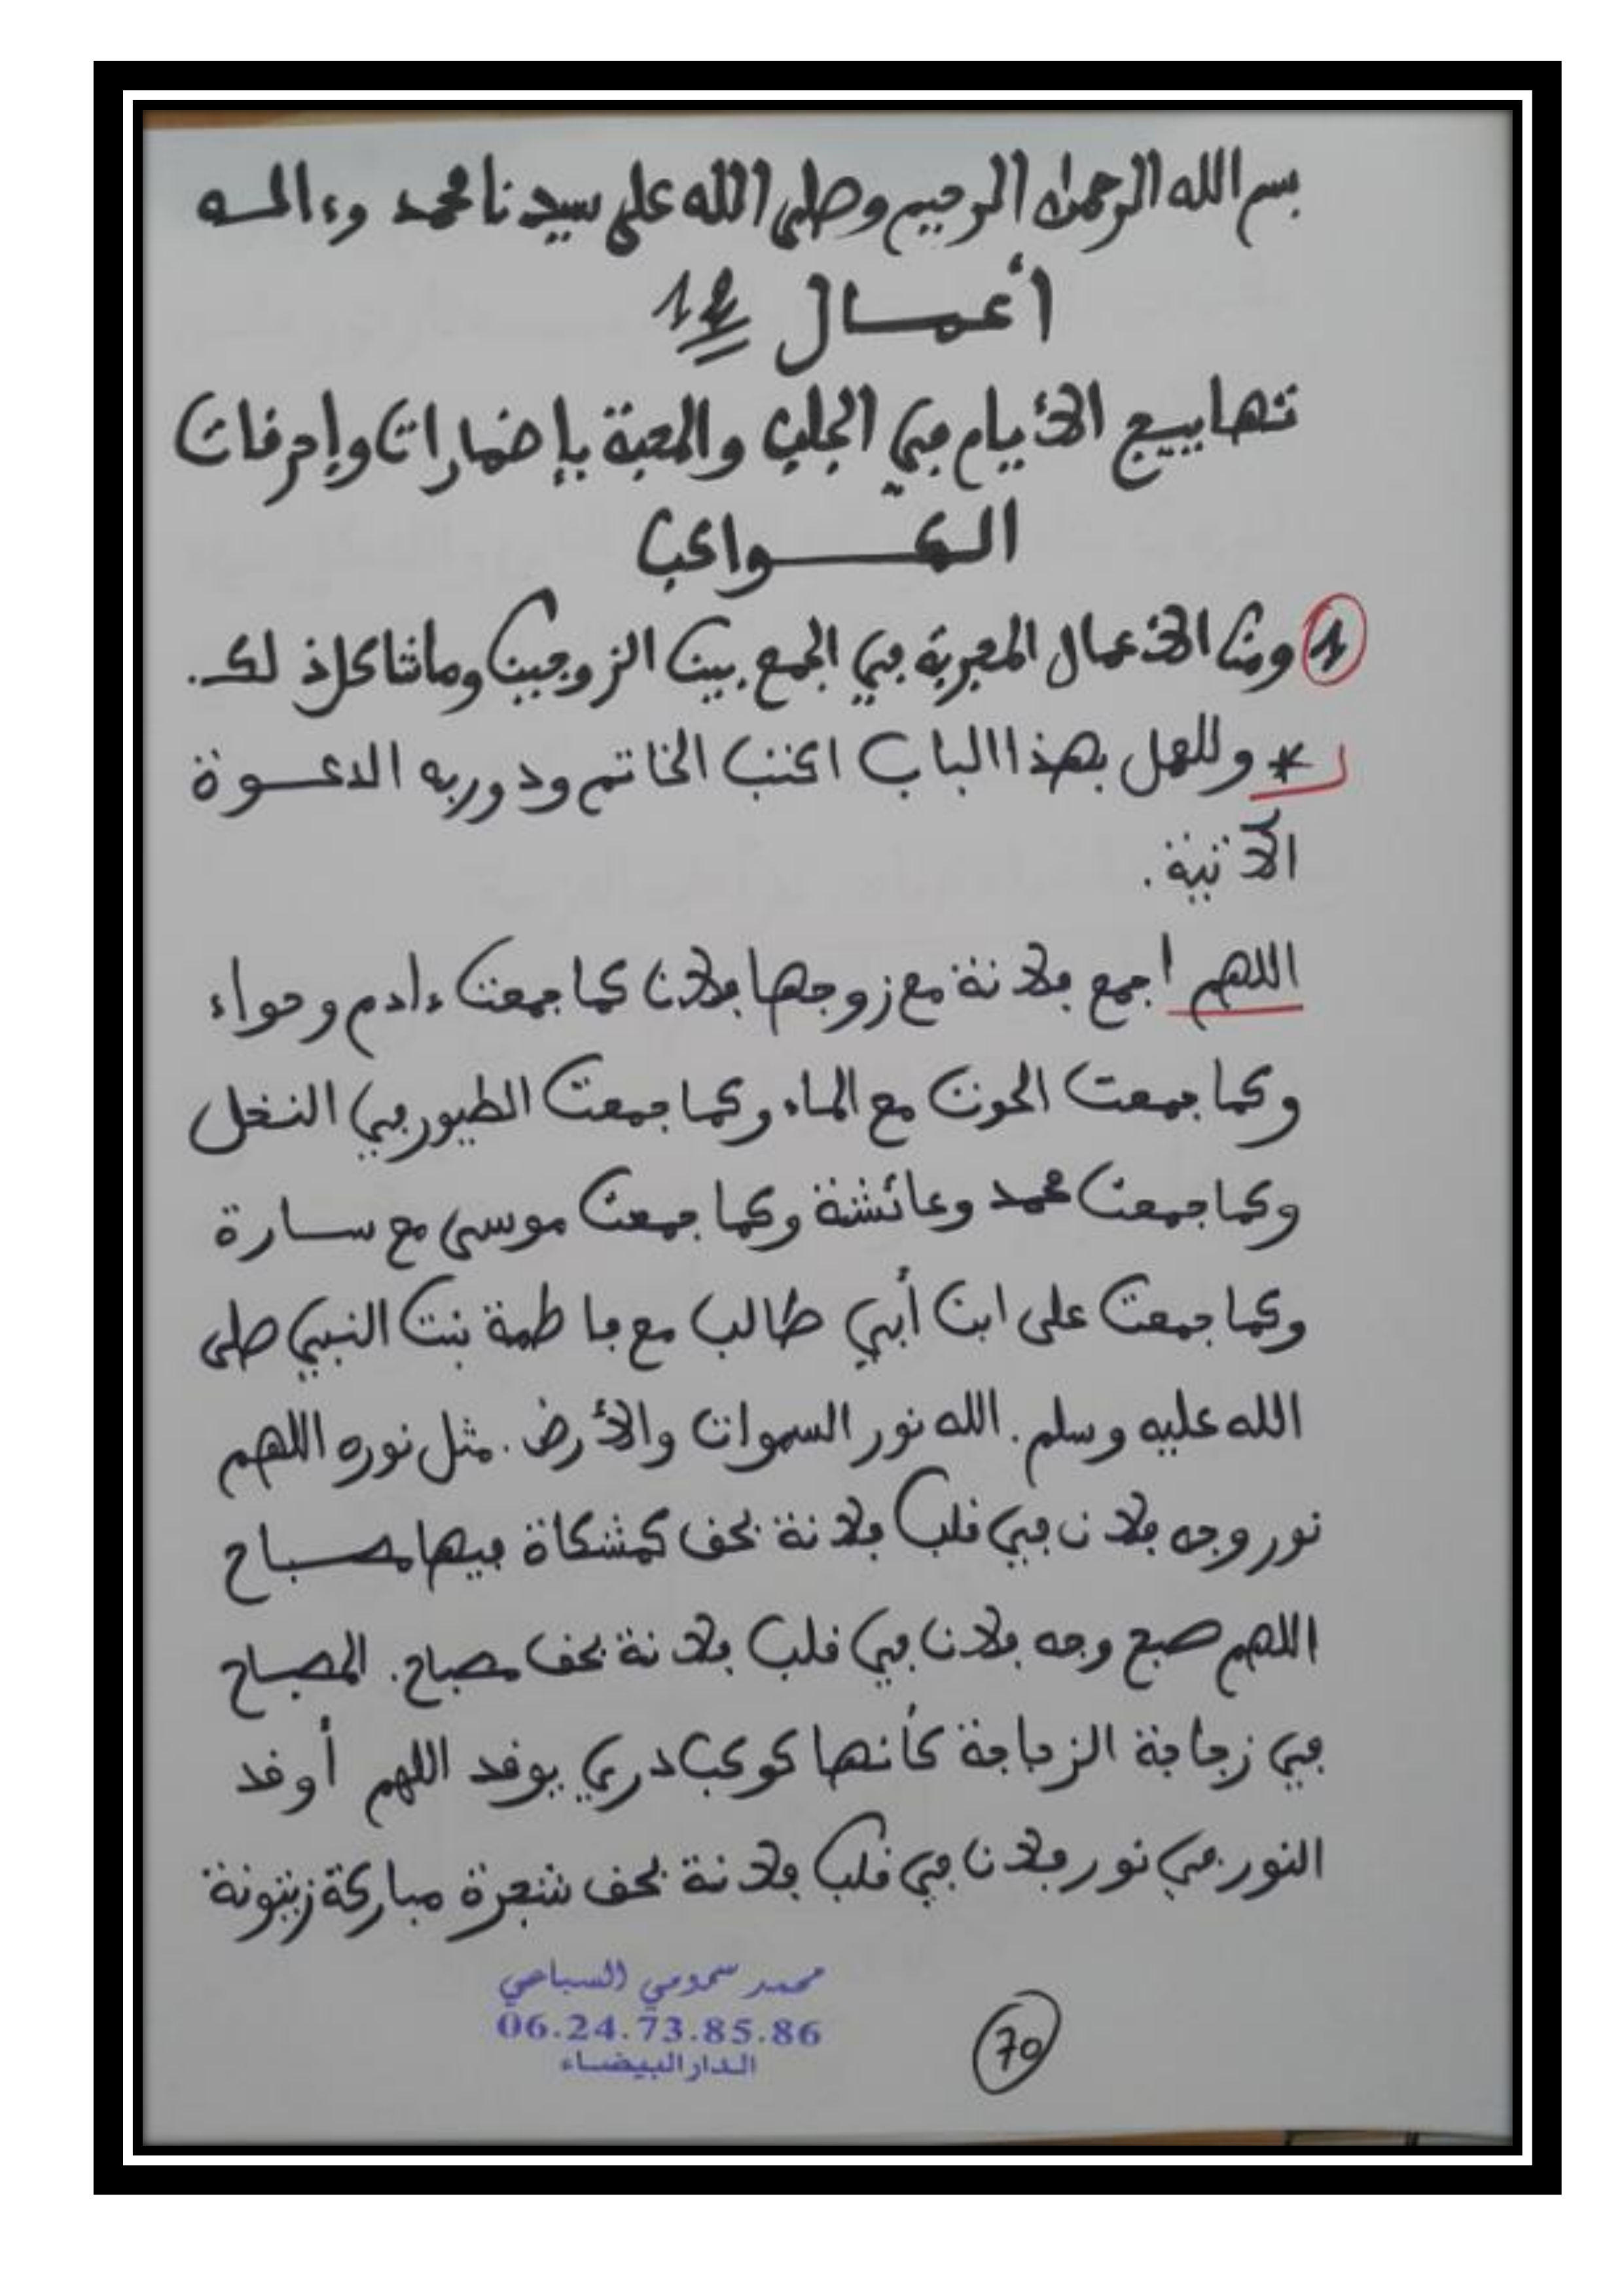 بسم الله الرحمان الرحيم وصلى الله على سيدنا محمد وءاله
أعمال 12
تهاييج الأيام في الجلب والمحبة بإضمارات وإحرقات
الكواكب
1 ومن الأعمال المجربة في الجمع بين الزوجين وماشاكل ذلك.
* وللعمل بهذا الباب اكتب الخاتم ودوربه الدعوة
الآتية.
اللهم اجمع فلانة مع زوجها فلان كما جمعت ءادم وحواء
وكما جمعت الحوت مع الماء وكما جمعت الطيور في النخل
وكما جمعت محمد وعائشة وكما جمعت موسى مع سارة
وكما جمعت على ابن أبي طالب مع فاطمة بنت النبي صلى
الله عليه وسلم. الله نور السموات والأرض. مثل نوره اللهم
نور وجه فلان في قلب فلانة بحق كمشكاة فيها مصباح
اللهم صبح وجه فلان في قلب فلانة بحق مصباح. المصباح
في زجاجة الزجاجة كأنها كوكب دري يوقد اللهم أوقد
النور في نور فلان في قلب فلانة بحق شجرة مباركة زيتونة
محمد سمومي السباعي
06.24.73.85.86
الدار البيضاء
70